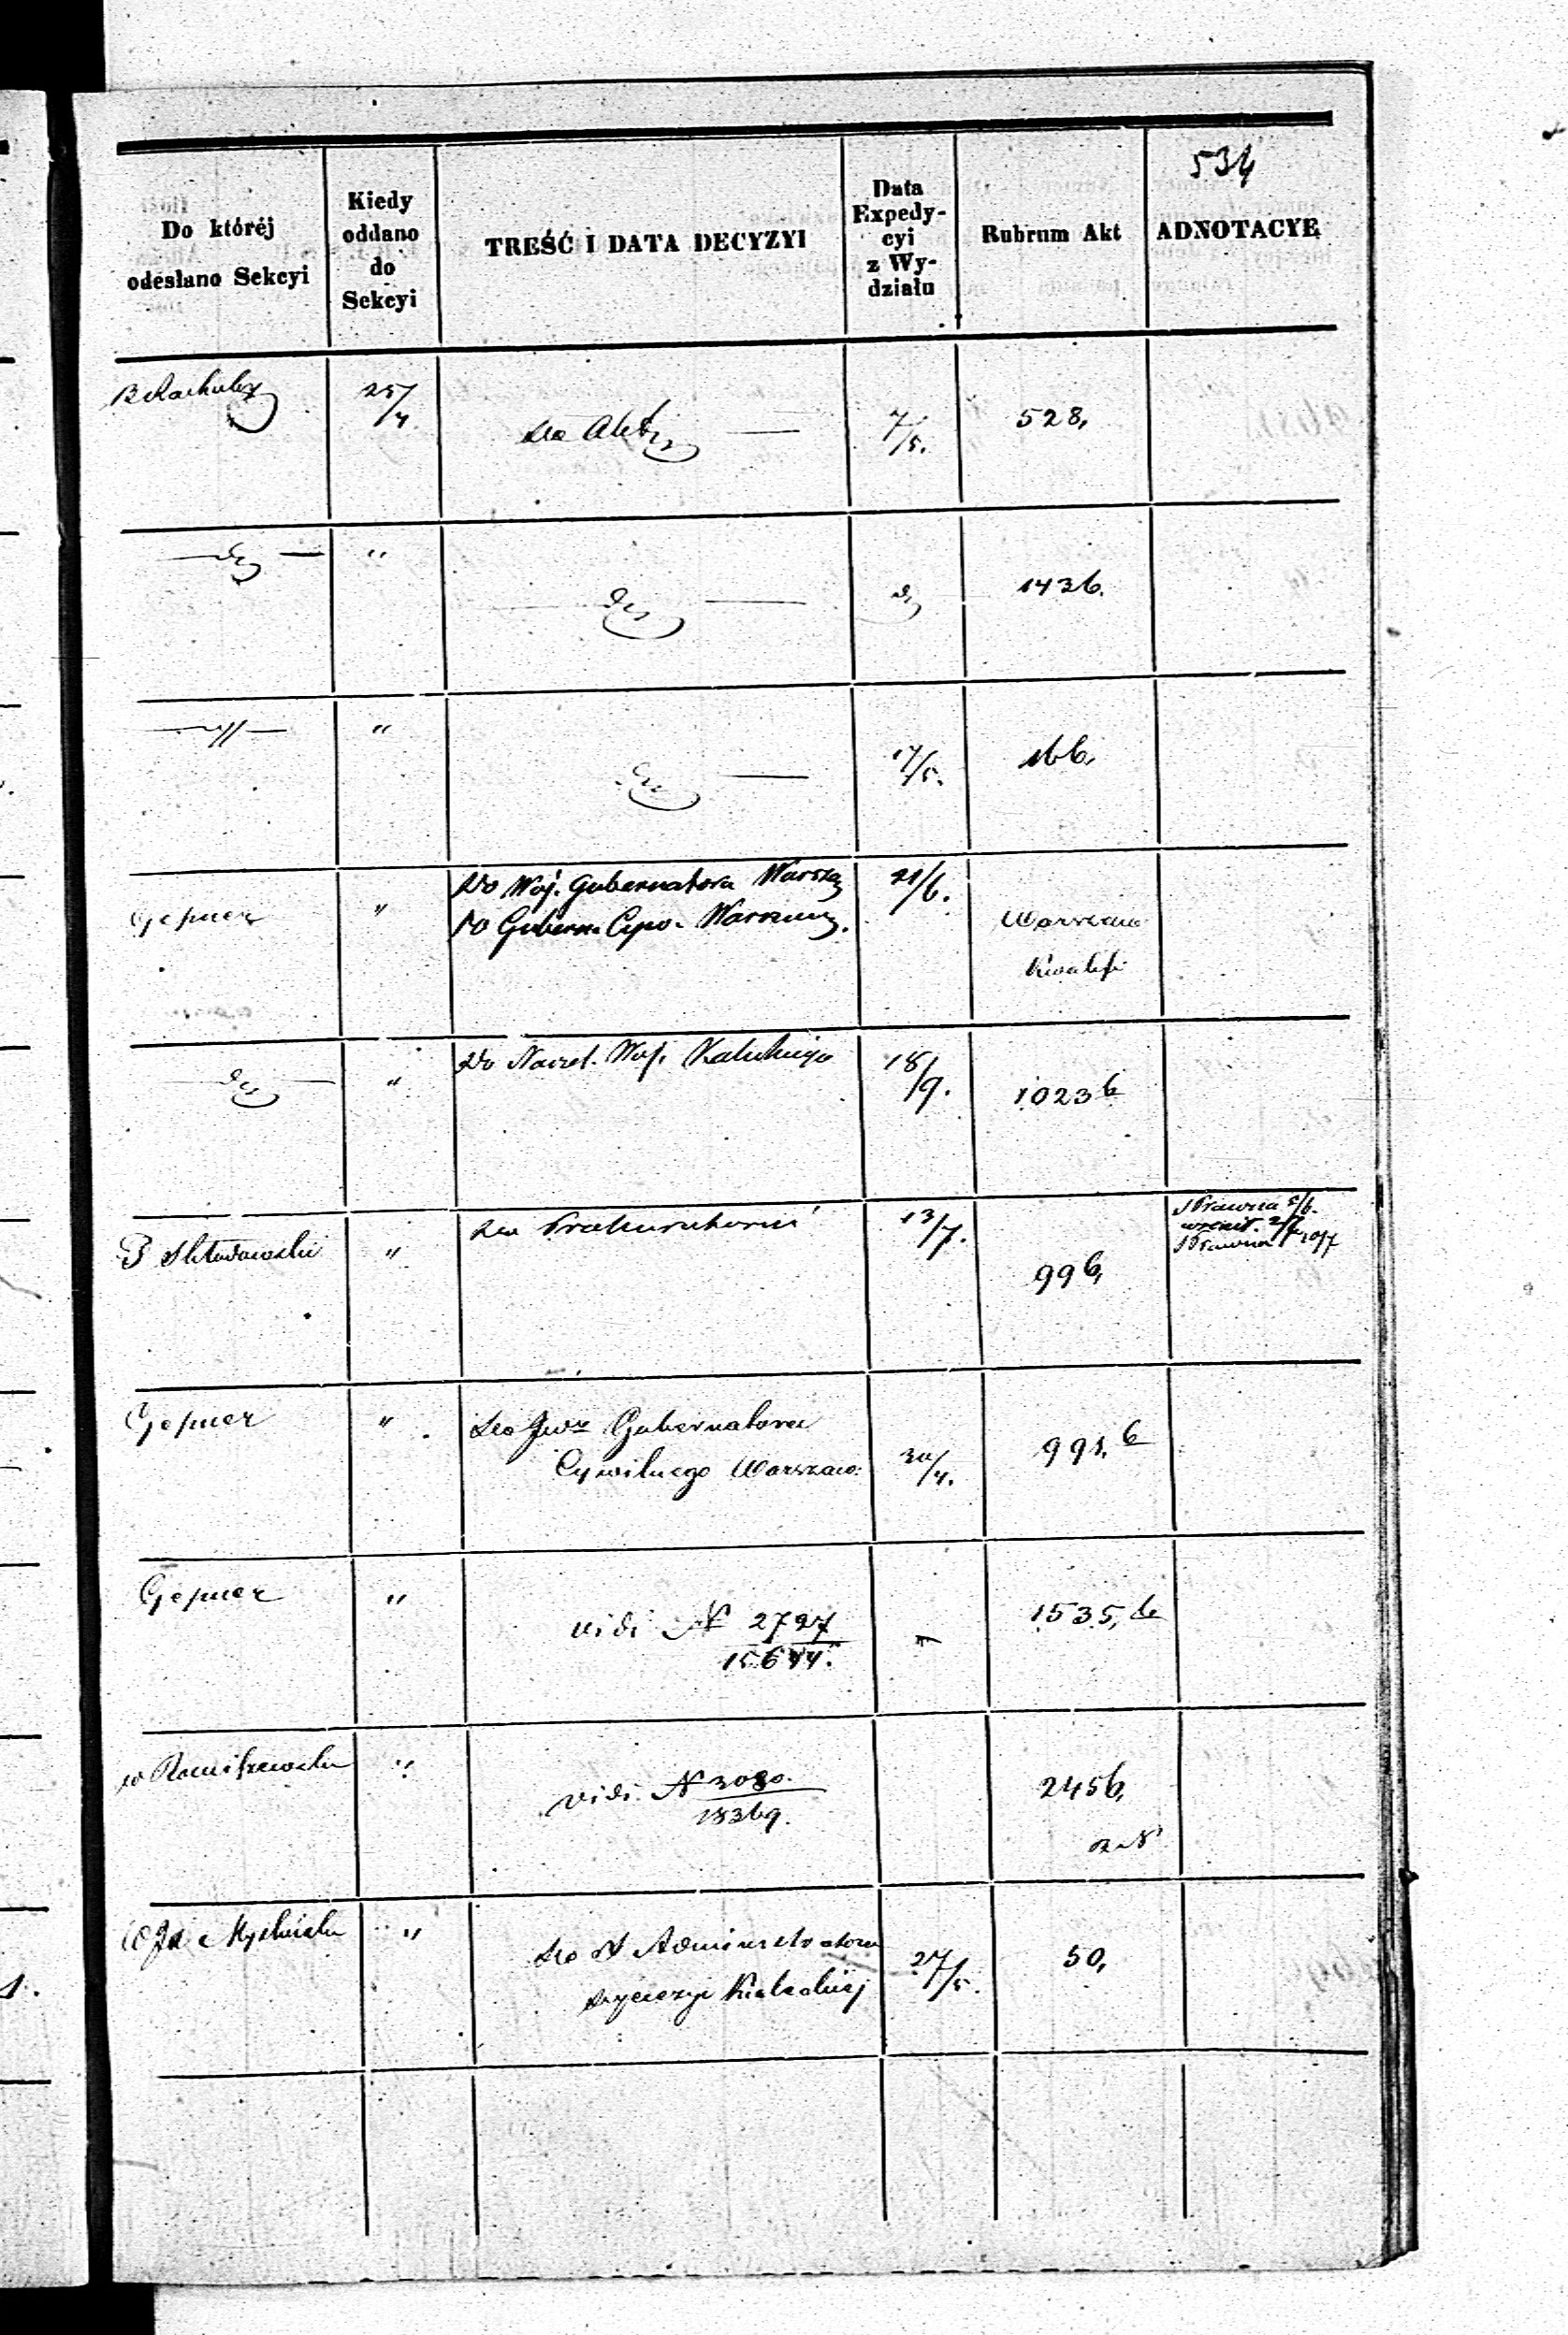 534
Do któréj
odesłano Sekcyi
Kiedy
oddano
do
Sekcyi
TREŚĆ I DATA DECYZYI
Data
Expedy-
cyi
z Wy-
działu
Rubrum Akt
ADNOTACYE
25/4
do Akt
7/5.
528,
"
143 b.
"
17/5.
16 b,
Gepner
"
Do Woj. Gubernatora Warsza
Do Gubern. Cyw. Warszaw.
21/6.
Warszawa
Kwalifi
"
Do Naczel. Woj. Kaliskiego
18/9.
1023 b
P Skłodowski
"
do Prokuratorii
13/7.
99 b,
Prawna 5/6.
zwrócił. 2/7
Prawna 10/7
Gepner
"
do Gubernatora
Cywilnego Warszaw:
30/4.
991, b
Gepner
"
vidi N 2727
15644.
1535, b
"
vidi N 3080.
18369.
245 b,
"
do Administratora
dyecezyi Kieleckiej
27/5.
50,